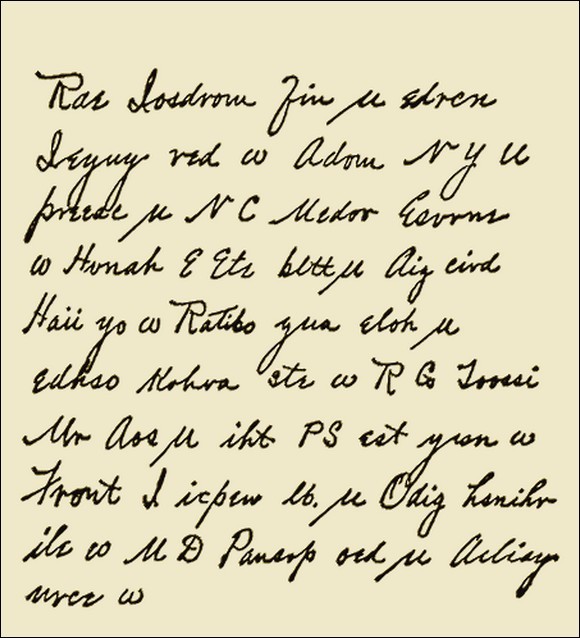 Rae Iosdrom Jin u edren
Ieyuy red w Adom N Y U
preese u N C Medor Esvrns
w Hvnah E Ete bltt u Aig civd
Haii yo w Ratibo yua eloh u
Edhso Kohva ste w R G Toossi
Mr Aos U iht PS est yusn w
Front I icpew lb. u Odig hsnihv
ile w M D Pansop oed u
urce w